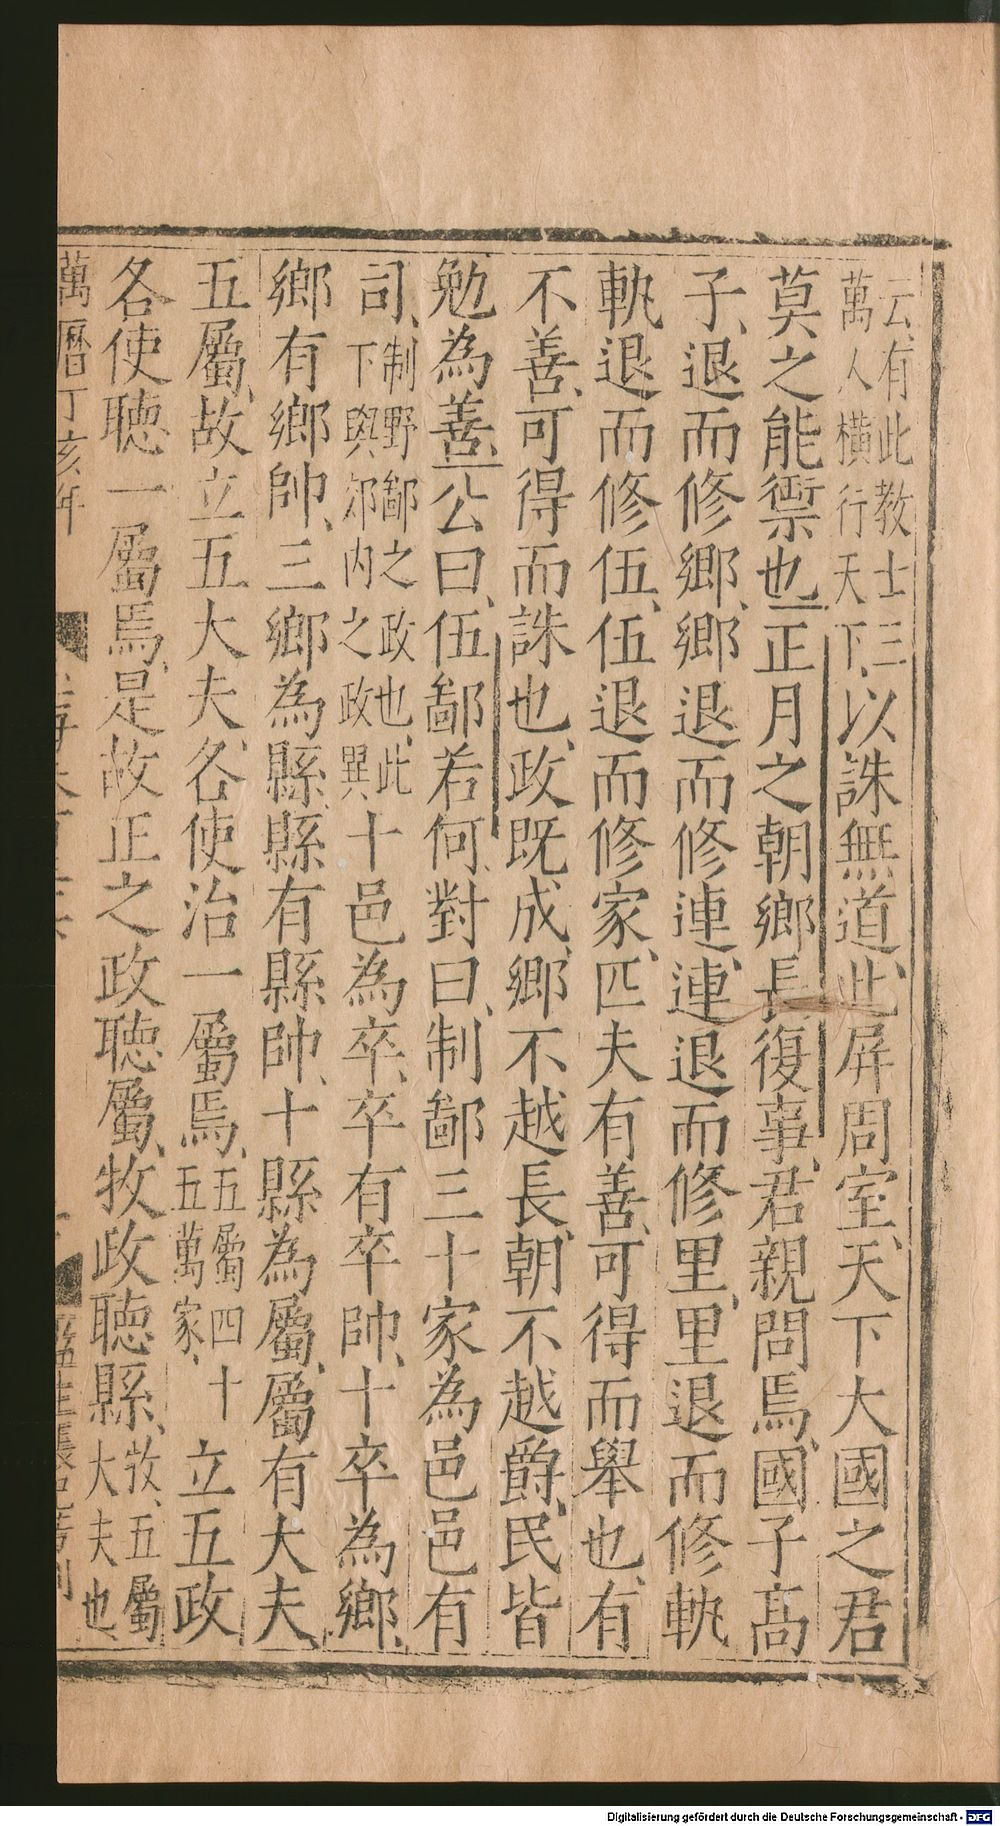 云、有此教士三萬人橫行天下、以誅無道、此屏周室、天下大國之君
莫之能禦也正月之朝鄉長復事、君親問焉、國子高
子、退而修鄉、鄉退而修連、連退而修里、里退而修軌
軌退而修伍、伍退而修家、匹夫有善、可得而舉也、有
不善、可得而誅也、政既成、鄉不越長、朝不越爵、民皆
勉為善、公曰、伍鄙若何、對曰、制鄙三十家為邑、邑有
司、制野鄙之政也、此下與郊内之政異、十邑為卒、卒有卒帥、十卒為鄉、
鄉有鄉帥、三鄉為縣、縣有縣帥、十縣為屬、屬有大夫、
五屬、故立五大夫、各使治一屬焉、五屬四十五萬家、立五政
各使聽一屬焉、是故正之政聽屬、牧政聽縣、牧、五屬大夫也、
萬曆丁亥年
Digitalisierung gefördert durch die Deutsche Forschungsgemeinschaft - DFG